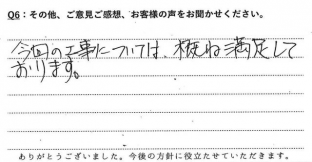 Q6：その他、ご意見ご感想、お客様の声をお聞かせください。
今回の工事については、概ね満足して
おります。
ありがとうございました。今後の方針に役立たせていただきます。